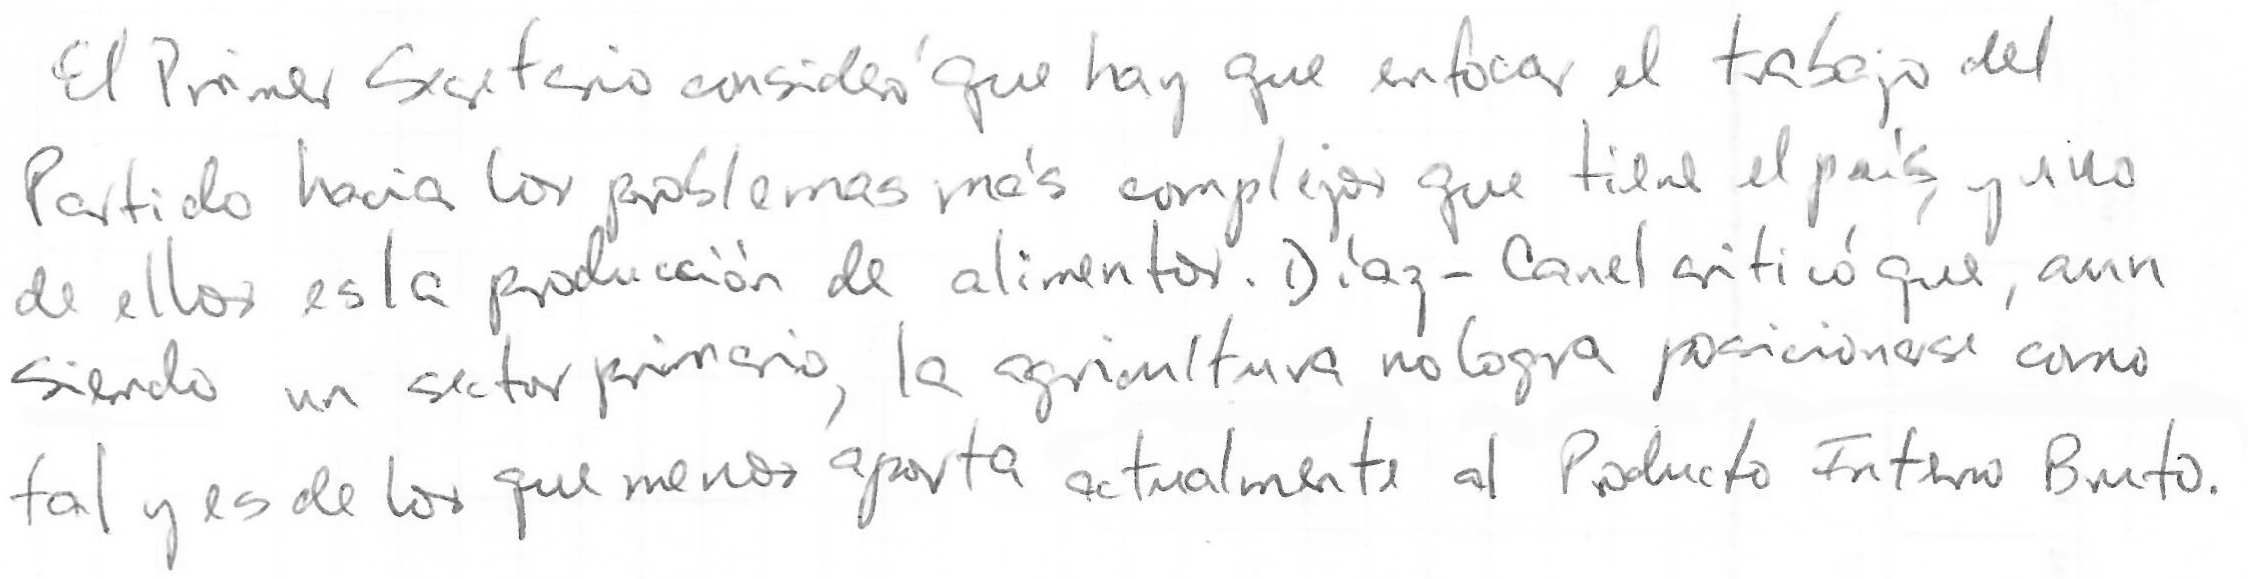 El Primer Secretario consideró que hay que enfocar el trabajo del
Partido hacia los problemas más complejos que tiene el país, y uno
de ellos es la producción de alimentos. Díaz-Canel criticó que, aun
siendo un sector primario, la agricultura no logra posicionarse como
tal y es de los que menos aporta actualmente al Producto Interno Bruto.